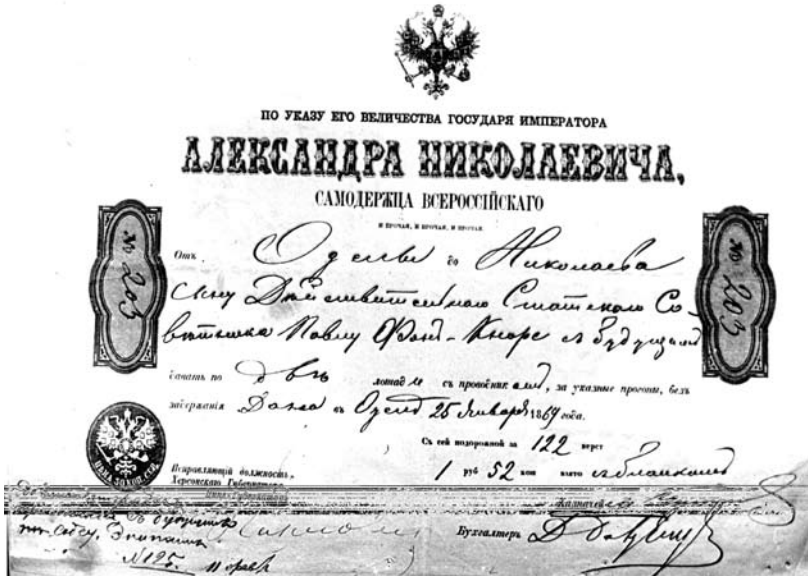 ПО УКАЗУ ЕГО ВЕЛИЧЕСТВА ГОСУДАРЯ ИМПЕРАТОРА
АЛЕКСАНДРА НИКОЛАЕВИЧА,
САМОДЕРЖЦА ВСЕРОССІЙСКАГО
И ПРОЧАЯ, И ПРОЧАЯ, И ПРОЧАЯ.
№ 203
№ 203
Отъ Одессы до Николаева
сыну Дѣйствительнаго Статскаго Со-
вѣтника Павлу Фонъ-Кнорe съ будущимъ
давать по двѣ лошади съ проводникомъ, за указные прогоны, безъ
задержанія Дана въ Одессѣ 25 Января 1869 года.
Съ сей подорожной за 122 верст
1 руб 52 коп взято съ бланкомъ
Исправляющій должность,
Херсонскаго
Казначей
Бухгалтеръ
№ 125.